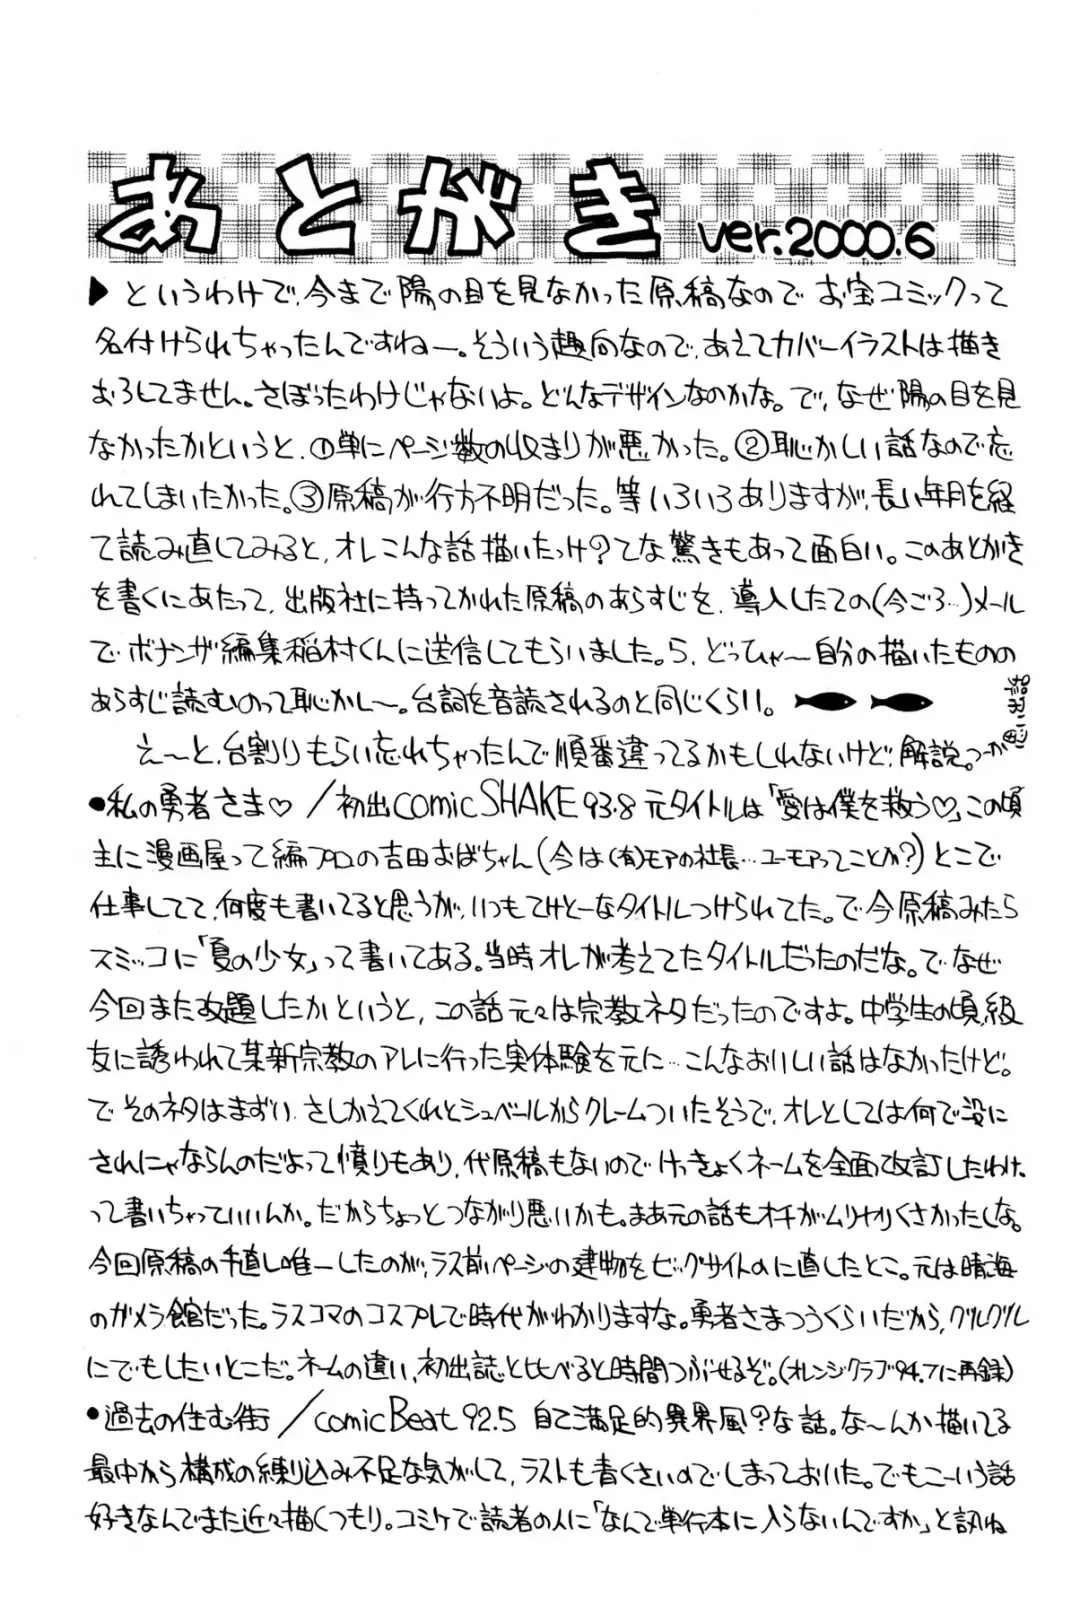 あとがき ver.2000.6
▶というわけで、今まで陽の目を見なかった原稿なのでお宝コミックって
名付けられちゃったんですねー。そういう趣向なので、あえてカバーイラストは描き
おろしてません。さぼったわけじゃないよ。どんなデザインなのかな。で、なぜ陽の目を見
なかったかというと、①単にページ数の収まりが悪かった。②恥かしい話なので忘
れてしまいたかった。③原稿が行方不明だった。等いろいろありますが、長い年月を経
て読み直してみると、オレこんな話描いたっけ?てな驚きもあって面白い。このあとがき
を書くにあたって、出版社に持ってかれた原稿のあらすじを、導入したての(今ごろ…)メール
でボナンザ編集稲村くんに送信してもらいました。ら、どっひゃ〜自分の描いたものの
あらすじ読むのって恥かし〜。台詞を音読されるのと同じくらい。
え〜と、台割りもらい忘れちゃったんで順番違ってるかもしれないけど、解説。つーか思い出話
●私の勇者さま♡/初出comic SHAKE 93.8 元タイトルは「愛は僕を救う♡」、この頃
主に漫画屋って編プロの吉田おばちゃん(今は(有)モアの社長…ユーモアってことか?)とこで
仕事してて、何度も書いてると思うが、いつもてけとーなタイトルつけられてた。で今原稿みたら
スミッコに「夏の少女」って書いてある。当時オレが考えてたタイトルだったのだな。で、なぜ
今回また改題したかというと、この話元々は宗教ネタだったのですよ。中学生の頃級
友に誘われて某新宗教のアレに行った実体験を元に…こんなおいしい話はなかったけど。
で そのネタはまずい、さしかえてくれとシュベールからクレームついたそうで、オレとしては何で没に
されにゃならんのだよって憤りもあり、代原稿もないのでけっきょくネームを全面改訂したわけ、
って書いちゃっていいんか。だからちょっとつながり悪いかも。まあ元の話もオチがムリヤリくさかったしな。
今回原稿の手直し唯一したのが、ラス前ページの建物をビッグサイトのに直したとこ。元は晴海
のガメラ館だった。ラスコマのコスプレで時代がわかりますな。勇者さまつうくらいだから、グルグル
にでもしたいとこだ。ネームの違い、初出誌と比べると時間つぶせるぞ。(オレンジクラブ94.7に再録)
●過去の住む街/comic Beat 92.5 自己満足的異界風?な話。な〜んか描いてる
最中から構成の練り込み不足な気がして、ラストも青くさいのでしまっておいた。でもこーいう話
好きなんでまた近々描くつもり。コミケで読者の人に「なんで単行本に入らないんですか」と訊ね